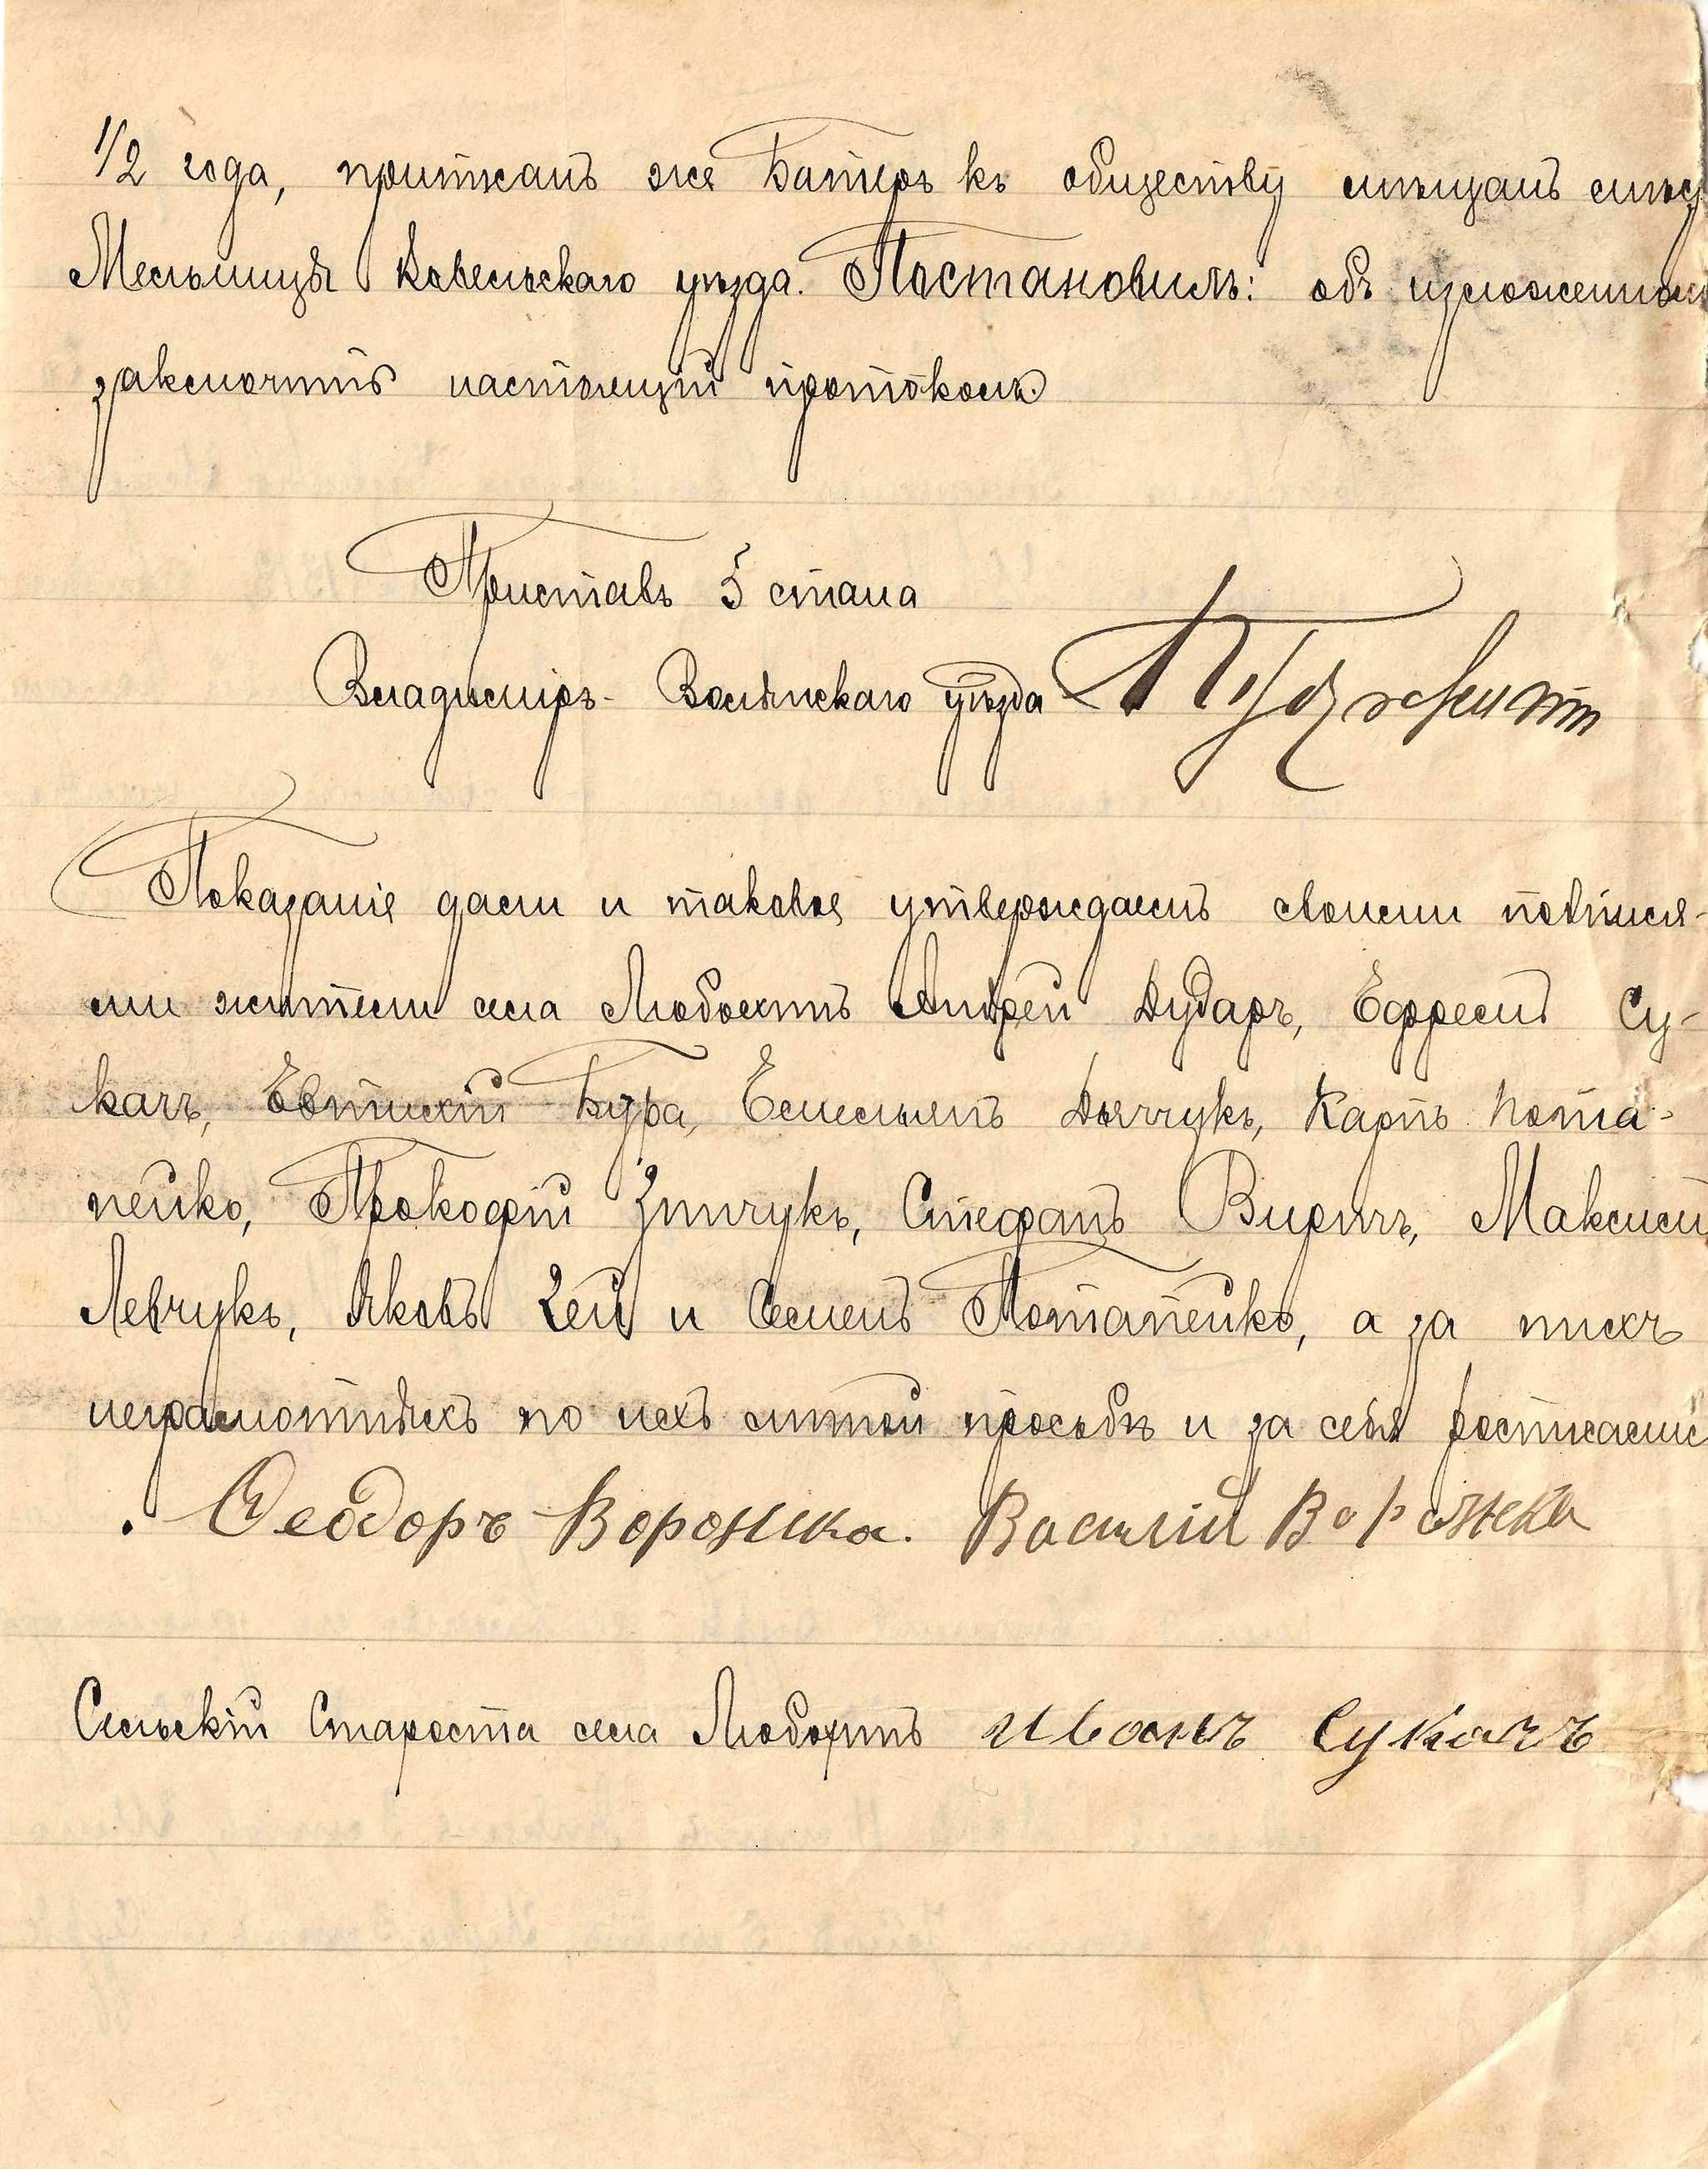 1/2 года, приписанъ же Батеръ къ обществу мѣщанъ мѣст
Мельницы Ковельскаго уѣзда. Постановилъ: объ изложенном
заключить настоящій протоколъ
Приставъ 5 стана
Владиміръ-Волынскаго уѣзда
Показаніе дали и таковое утверждаемъ своими подпися-
ми жители села Любохинъ Андрей Дударъ, Ефремъ Су-
качъ, Евтихій Бура, Емельянъ Дьячукъ, Карпъ Пота-
пейко, Прокофій Зинчукъ, Стефанъ Виричъ, Максим
Левчукъ, Яковъ Зей и Семенъ Потапейко, а за нихъ
неграмотныхъ по ихъ личной просьбѣ и за себя росписались
Ѳеодоръ Воронка. Василій Воронка
Сельскій Староста села Любохинъ Иванъ Сукачъ